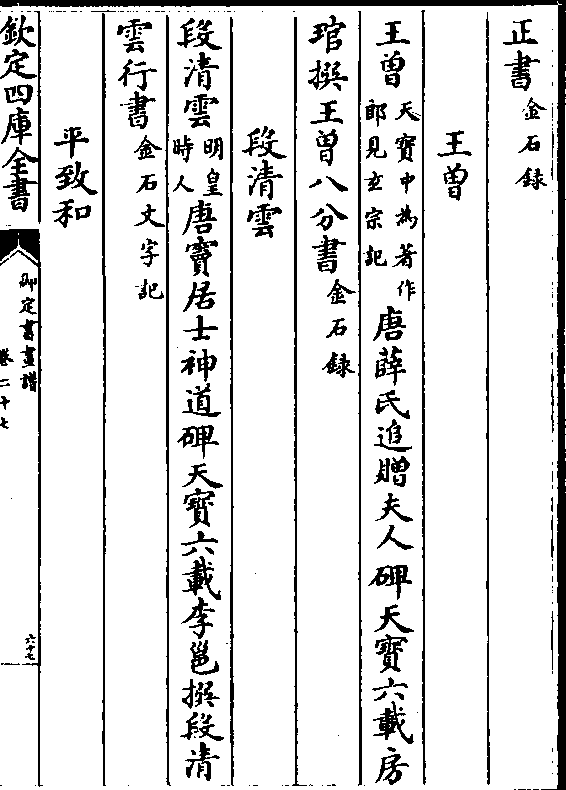 正書金石録
王曾
王曾天寳中為著作郎見玄宗記唐薛氏追贈夫人碑天寳六載房
琯撰王曾八分書金石録
段清雲
段清雲明皇時人唐竇居士神道碑天寳六載李邕撰段清
雲行書金石文字記
平致和
欽定四庫全書
御定書畫譜
卷二十七
六十七